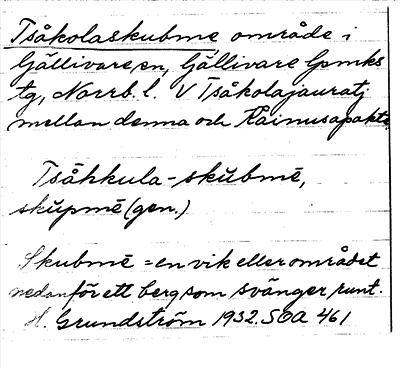 Tsåkolaskubme område i
Gällivare sn, Gällivare lpmks
tg, Norrb. l. V Tsåkolajauratj
mellan denna och Kainusapakte.
Tsåhkula-skŭbmē,
skŭpmē (gen.)
Skubmē = en vik eller området
nedanför ett berg som svänger runt.
H. Grundström 1932. SOA 461